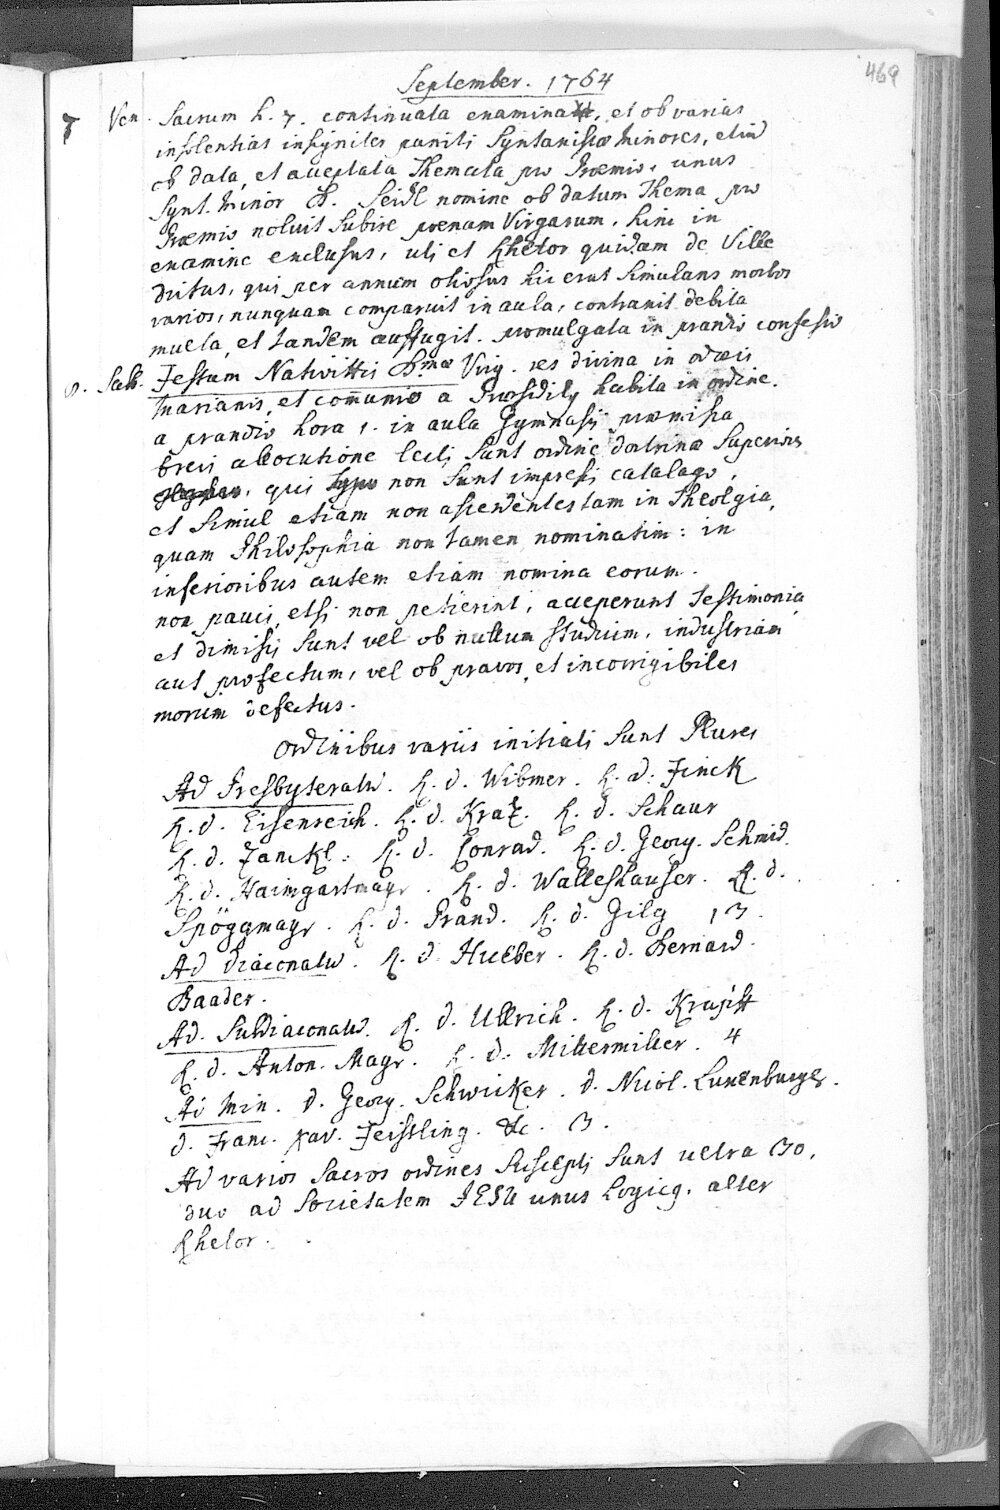 469
September. 1764
7 Ven. Sacrum h. 7. continuata examina, et ob varias
insolentias insigniter puniti Syntaxistae minores, etiam
ob data, et acceptata Themata pro Praemio, unus
Synt. minor B. Seidl nomine ob datum Thema pro
Praemio noluit subire poenam Virgarum, hinc in
examine exclusus, uti et Rhetor quidam de Ville
dictus, qui per annum otiosus hic erat simulans morbos
varios, nunquam comparuit in aula, contraxit debita
multa, et tandem auffugit. promulgata in prandio confessio
8. Sabb. Festum Nativittis B.mae Virg. res divina in
marianis, et communio a Praesidib9 habita in ordine.
a prandio hora 1. in aula Gymnasij praemissa
brevi allocutione lecti sunt ordine doctrinae Superiores
qui typo non sunt impressi catalago,
et simul etiam non ascendentes tam in Theologia,
quam Philosophia non tamen nominatim: in
inferioribus autem etiam nomina eorum.
non pauci, etsi non petierint, acceperunt Testimonia
et dimissi sunt vel ob nullum studium, industriam
aut profectum, vel ob pravos, et incorrigibiles
morum defectus.
Ordinibus variis initiati sunt Plures
Ad Presbyteratu. R. d. Wibmer. R. d. Finck
R. d. Eisenreich. R. d. Kraz. R. d. Schaur
R. d. Janckl. R. d. Conrad. R. d. Georg. Schmid.
R. d. Haimgartmayr. R. d. Walleshauser. R. d.
Spöggmayr. R. d. Prand. R. d. Gilg 13.
Ad diaconatu. R. d. Hueber. R. d. Bernard.
Baader.
Ad. Subdiaconatu. R. d. Ullrich. R. d.
R. d. Anton. Mayr. R. d. Mittermiller. 4
Ad Min. d. Georg. Schwicker. d. Nicol. Luxenburger.
d. Franc. Xav. Feistling. &c. 3.
Ad varios Sacros ordines suscepti sunt ultra 30,
duo ad Societatem JESU unus Logicq, alter
Rhetor.